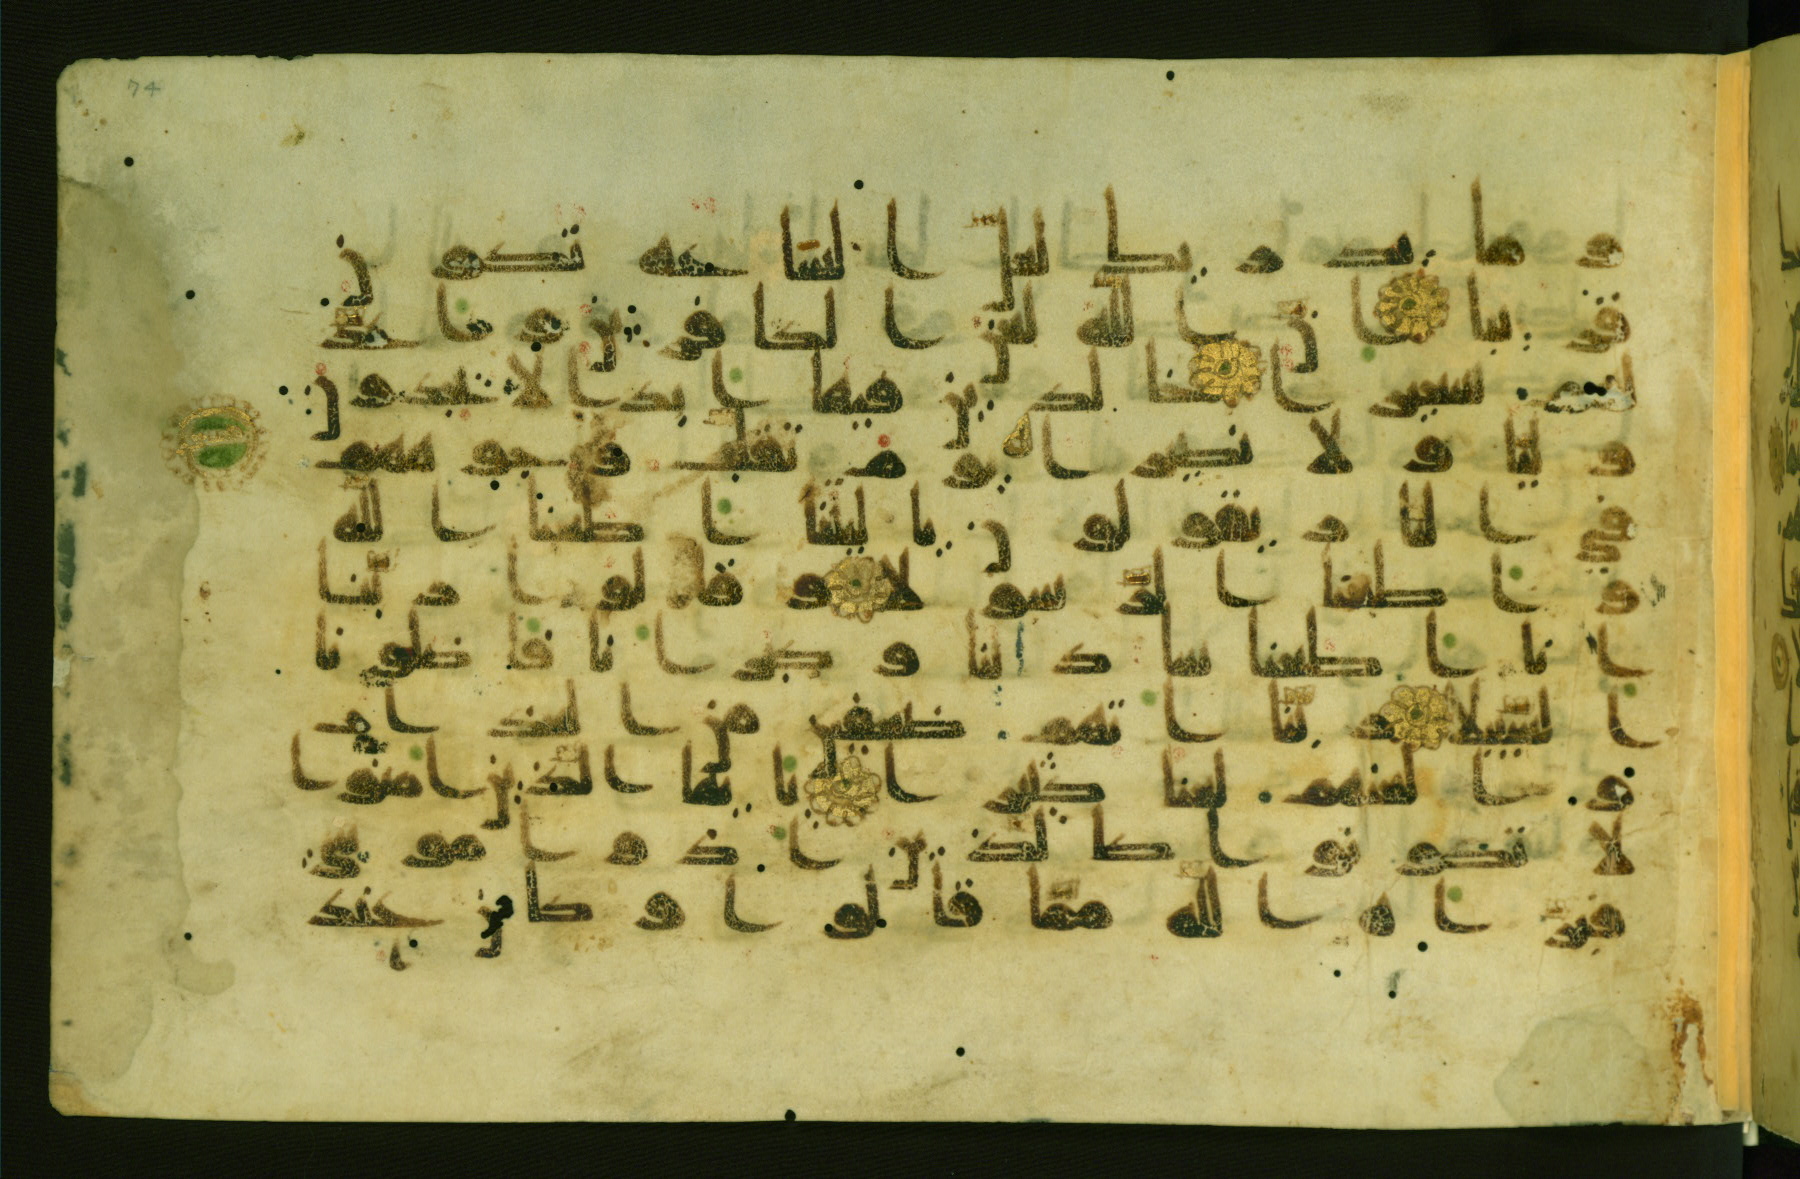 74
و ما يدريك لعل الساعه تكون
قريبا ان الله لعن الكفرين و اعد
لهم سعيرا خلدين فيها ابدا لا يجدون
وليا و لا نصيرا يوم تقلب وجوههم
في النار يقولون يا ليتنا اطعنا الله
و اطعنا الرسولا و قالوا ربنا
انا اطعنا سادتنا و كبرانا فاضلونا
السبيلا ربنا اتهم ضعفين من العذاب
و العنهم لعنا كبيرا يايها الذين امنوا
لا تكونوا كالذين اذوا موسى
فبراه الله مما قالوا و كان عند